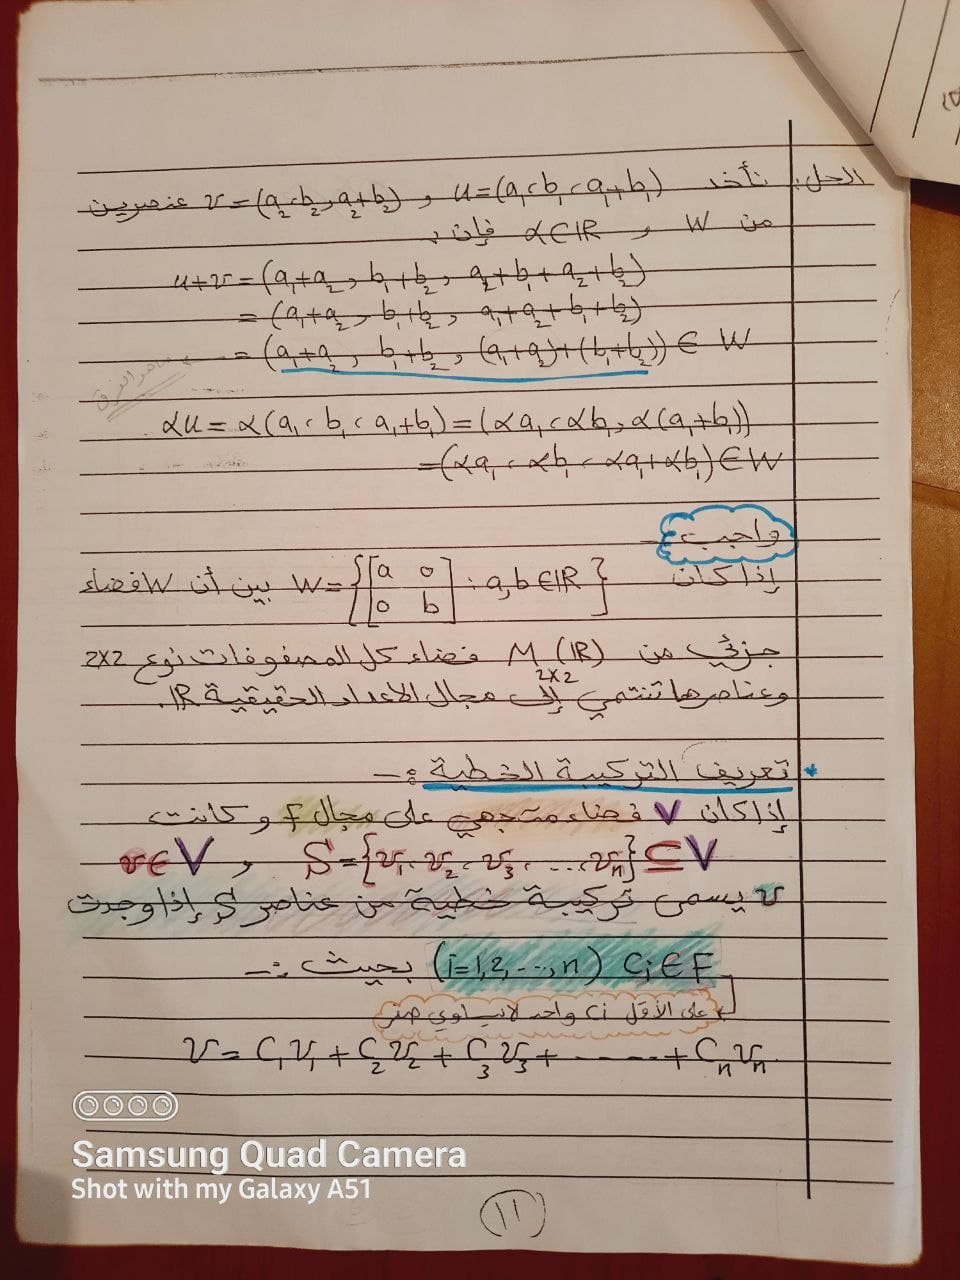 الحل: نأخذ u=(a₁, b₁, a₁+b₁) و v=(a₂, b₂, a₂+b₂) عنصرين
من W و α∈IR فإن:
u+v=(a₁+a₂, b₁+b₂, a₁+b₁+a₂+b₂)
=(a₁+a₂, b₁+b₂, a₁+a₂+b₁+b₂)
=(a₁+a₂, b₁+b₂, (a₁+a₂)+(b₁+b₂)) ∈ W
αu=α(a₁, b₁, a₁+b₁)=(αa₁, αb₁, α(a₁+b₁))
=(αa₁, αb₁, αa₁+αb₁)∈W
واجب:-
إذا كان W={[a 0; 0 b] : a,b∈IR} بين أن W فضاء
جزئي من M₂ₓ₂(IR) فضاء كل المصفوفات نوع 2x2
وعناصرها تنتمي إلى مجال الاعداد الحقيقية IR.
* تعريف التركيبة الخطية :-
إذا كان V فضاء متجهي على مجال F و كانت
S={v₁, v₂, v₃, ..., vₙ}⊆V و v∈V
v يسمى تركيبة خطية من عناصر S إذا وجدت
Cᵢ∈F (i=1,2,...,n) بحيث :-
على الأقل Ci واحد لا يساوي صفر
v= C₁v₁ + C₂v₂ + C₃v₃ + ------ + Cₙvₙ
Samsung Quad Camera
Shot with my Galaxy A51
11